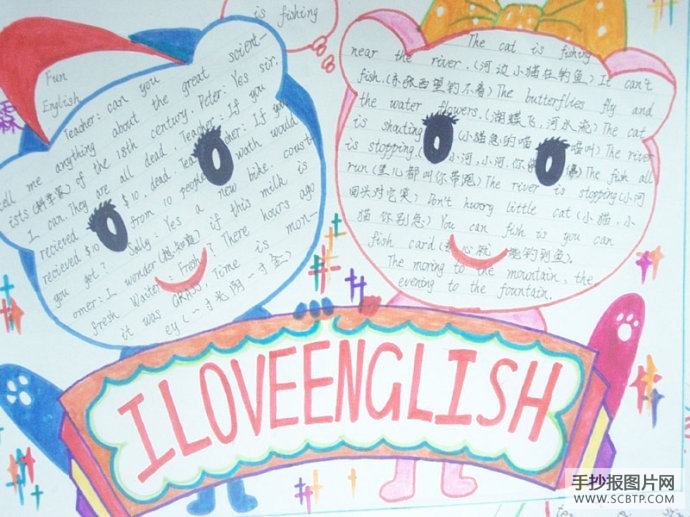 is fishing
Fun
English
Teacher: can you
tell me anything about the great scient-
ists (科学家) of the 18th century. Peter: Yes sir.
I can. They are all dead. Teacher: If you
recieved $10 from 10 people
recieved $10
you get? Sally: Yes a new bike. cust-
omer: I wonder (想知道) if this milk is
fresh. Waiter: Fresh? There hours ago
it was GRASS. Time is mon-
ey (一寸光阴一寸金)
The cat is fishing
near the river. (河边小猫在钓鱼) It can't
fish. (东张西望钓不着) The butterflies fly and
the water flowers. (蝴蝶飞,河水流) The cat
is shouting (小猫急的喵 喵叫) The river
is stopping. (小河,小河,你 The fish all
run (鱼儿都叫你带跑) The river is stopping (小河
回头对它笑) Don't hurry little cat (小猫,小
猫 你别急) You can fish is you can
fish card
The moring to the mountain, the
evening to the fountain.
ILOVEENGLISH
手抄报图片网
WWW.SCBTP.COM